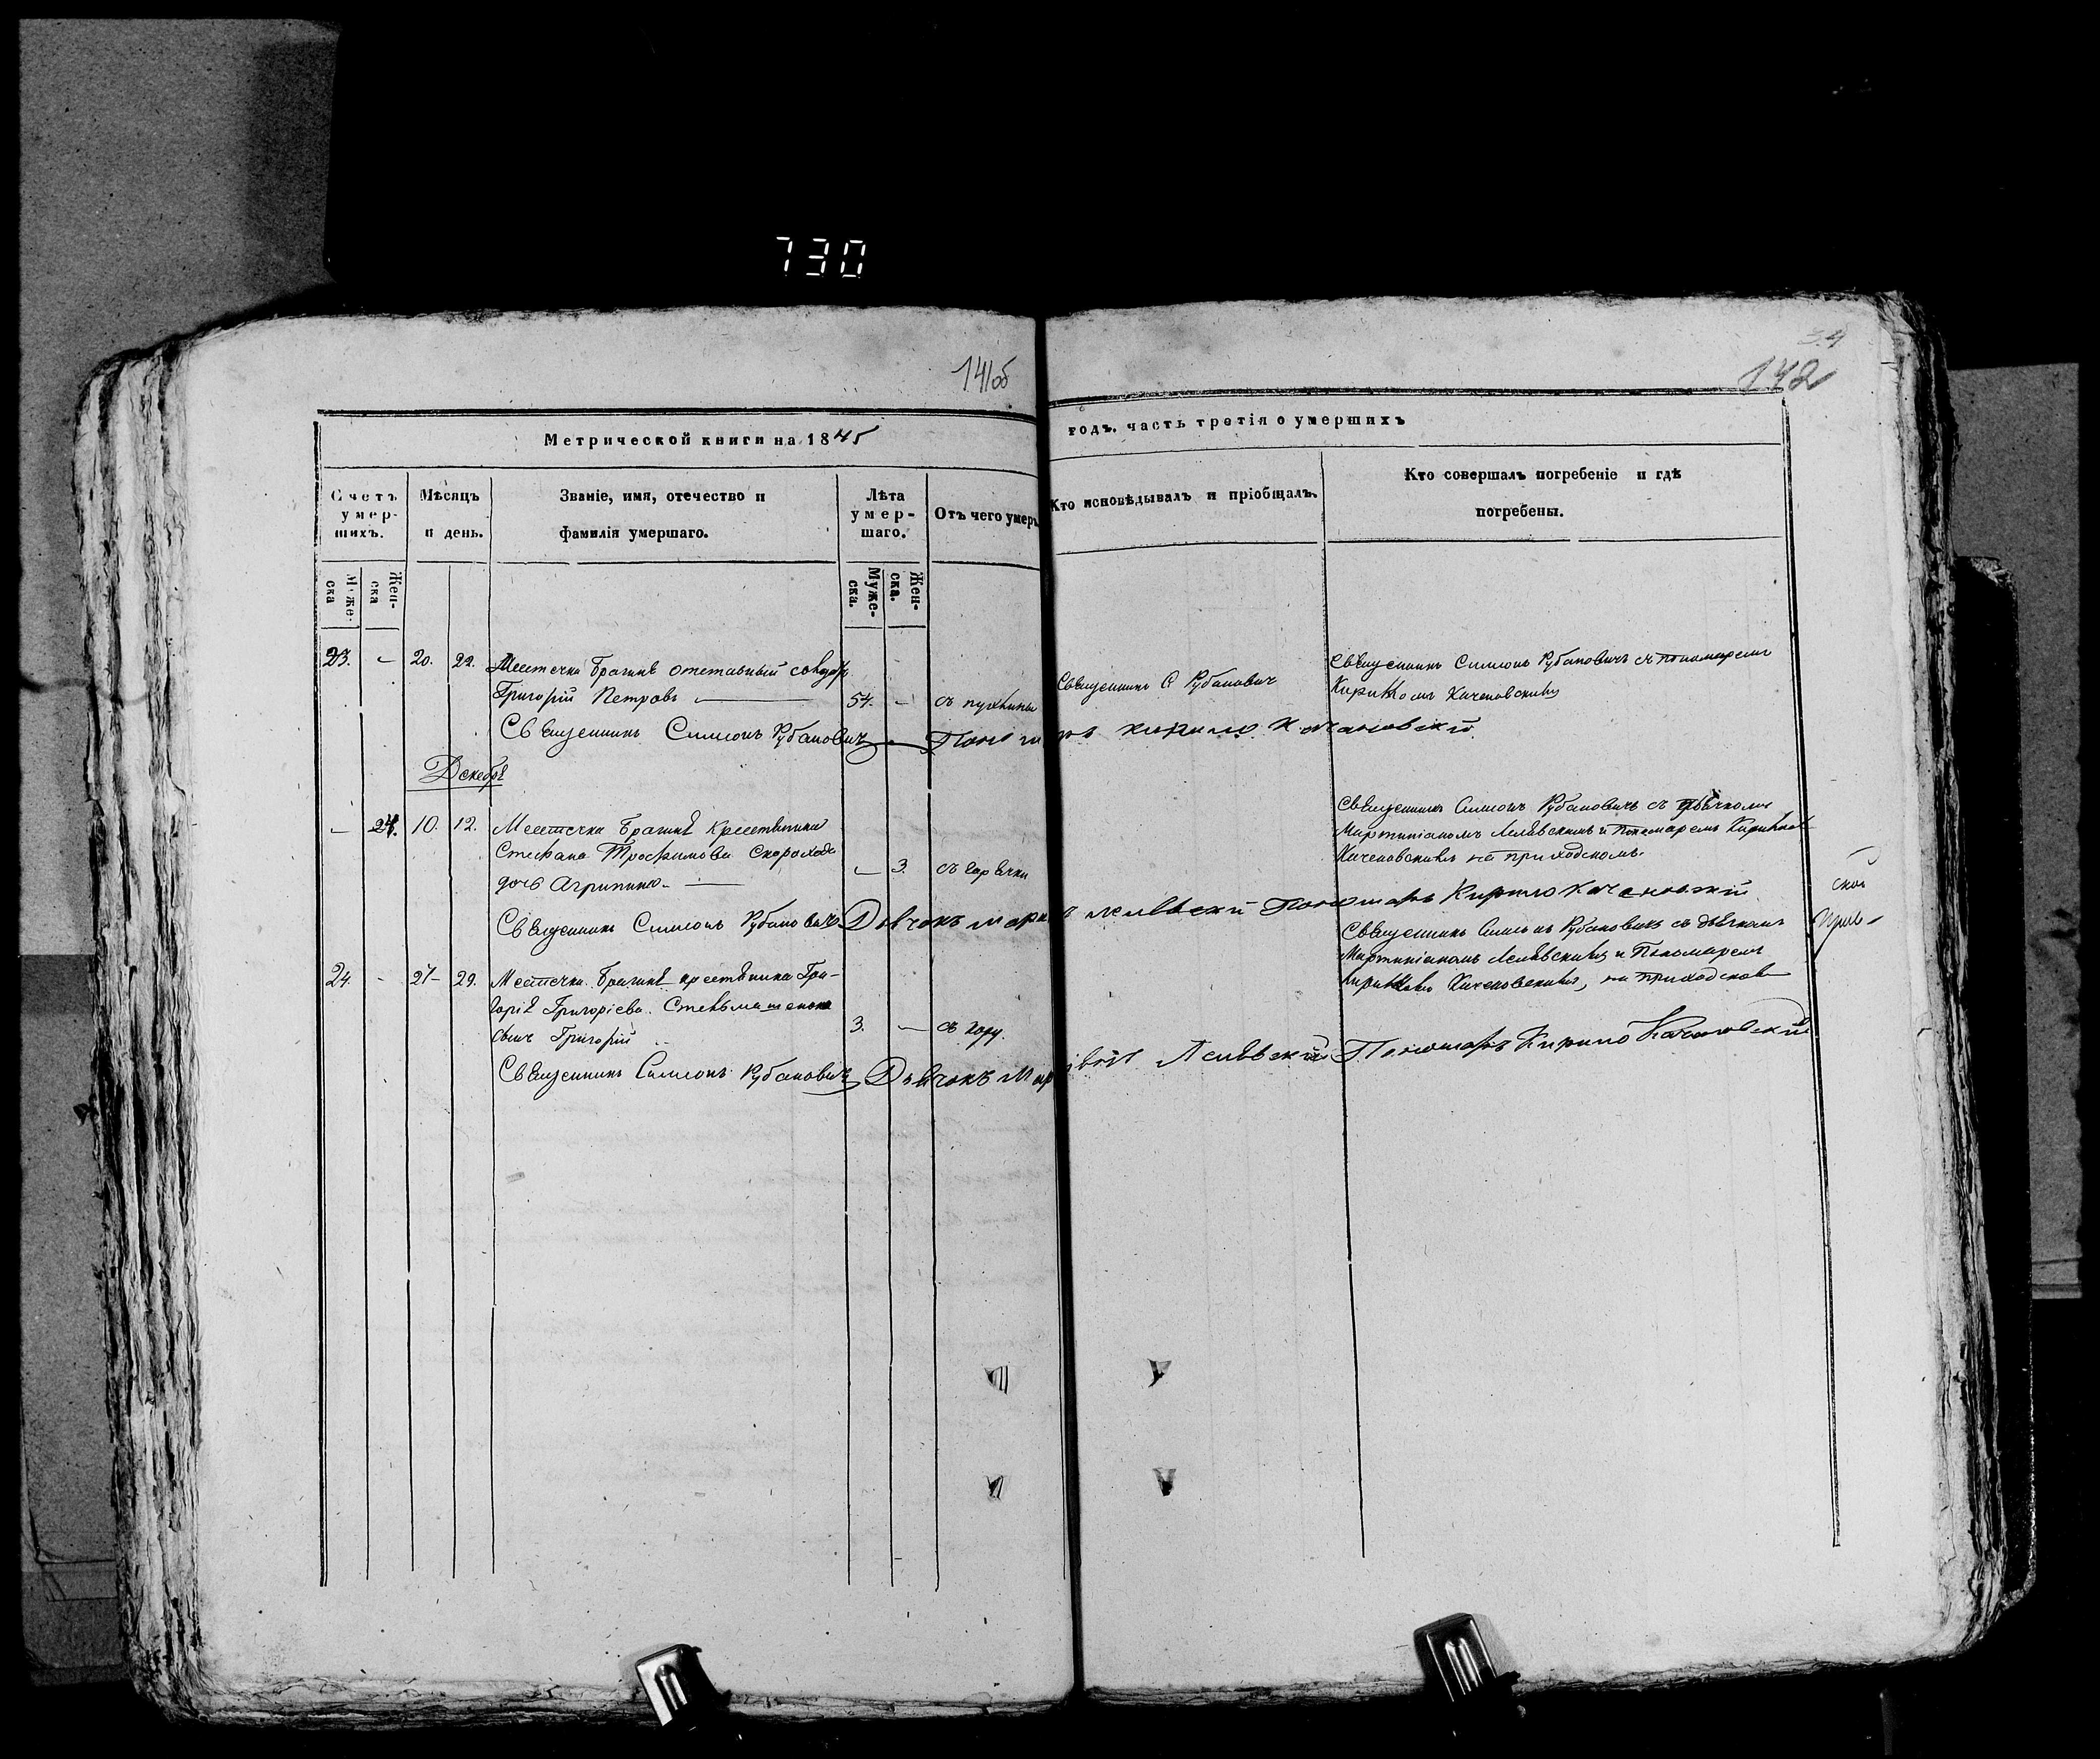 730
141об
34
142
Метрической книги на 1845
годъ. часть третія о умершихъ
Счетъ умер-шихъ.
Мѣсяцъ и день.
Званіе, имя, отечество и
фамилія умершаго.
Лѣта умер-шаго.
Отъ чего умеръ
Кто исповѣдывалъ и пріобщалъ.
Кто совершалъ погребеніе и гдѣ
погребены.
Муже-ска
Жен-ска
Муже-ска.
Жен-ска.
23. - 20. 22. Местечка Брагинѣ отставный
Григорій Петровъ 54. - съ пухлины
Священникъ С Рубановичь
Священникъ Симеонъ Рубановичъ съ пономаремъ
Кириломъ Качановскимъ
Священникъ Симеонъ Рубановичъ Пономарь Кирило Качановскій
Декабрѣ
- 24. 10. 12. Местечка Брагинѣ Крестьянина
Стефана Трофимова Скорохода
дочь Агрипина - 3. съ горячки
Священникъ Симеонъ Рубановичъ съ дьячкомъ
Мартиніаномъ Лелявскимъ и Пономаремъ Кириломъ
Качановскимъ на приходскомъ
Священникъ Симеонъ Рубановичъ Дьячокъ Лелявскій Пономарь Кирило Качановскій
24. - 27 29. Местечка Брагинѣ крестьянина Гри-
горія Григоріева
сынъ Григорій 3. - съ кору.
Священникъ Симеонъ Рубановичъ съ дьячкомъ
Мартиніаномъ Лелявскимъ и Пономаремъ
Кириломъ Качановскимъ, на приходском
Священникъ Симеонъ Рубановичъ Дьячокъ Лелявскій Пономарь Кирило Качановскій